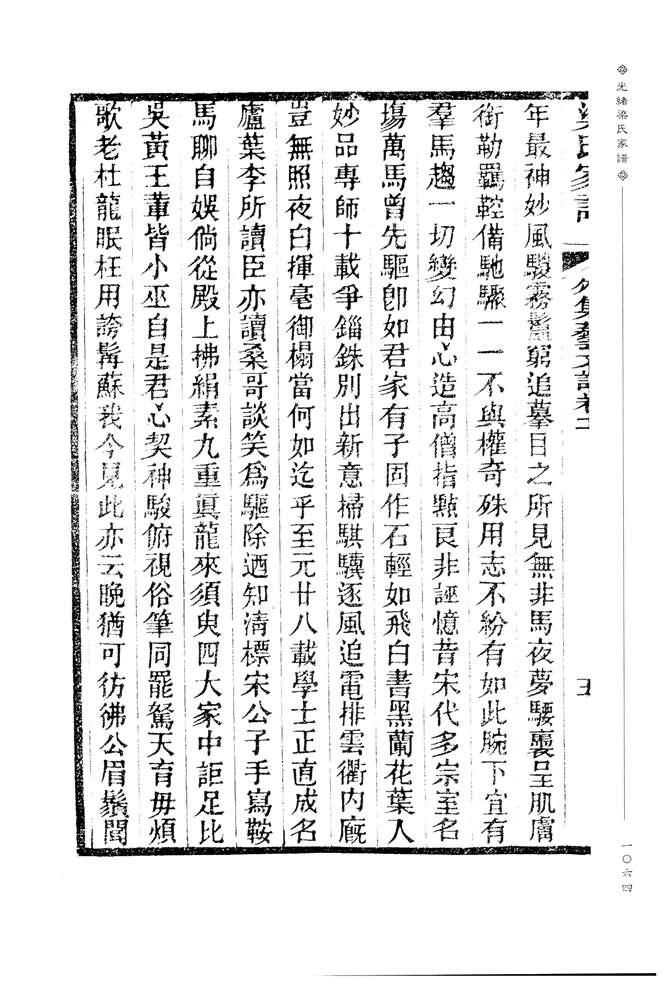 光緒梁氏家譜
一〇六四
梁氏家譜 外集藝文詩卷二 五
年最神妙風鬉霧鬣窮追摹目之所見無非馬夜夢騕褭呈肌膚
銜勒羈鞚備馳驟一一不與權奇殊用志不紛有如此腕下宜有
羣馬趨一切變幻由心造高僧指點良非誣憶昔宋代多宗室名
塲萬馬曾先驅卽如君家有子固作石輕如飛白書墨蘭花葉人
妙品專師十載爭錙銖別出新意掃騏驥逐風追電排雲衢內廐
豈無照夜白揮毫御榻當何如迄乎至元廿八載學士正直成名
廬葉李所讀臣亦讀桑哥談笑爲驅除迺知淸標宋公子手寫鞍
馬聊自娛倘從殿上拂絹素九重眞龍來須臾四大家中詎足比
吳黃王輩皆小巫自是君心契神駿俯視俗筆同罷駑天育毋煩
歌老杜龍眠枉用誇髯蘇我今見此亦云晚猶可彷彿公眉鬚聞